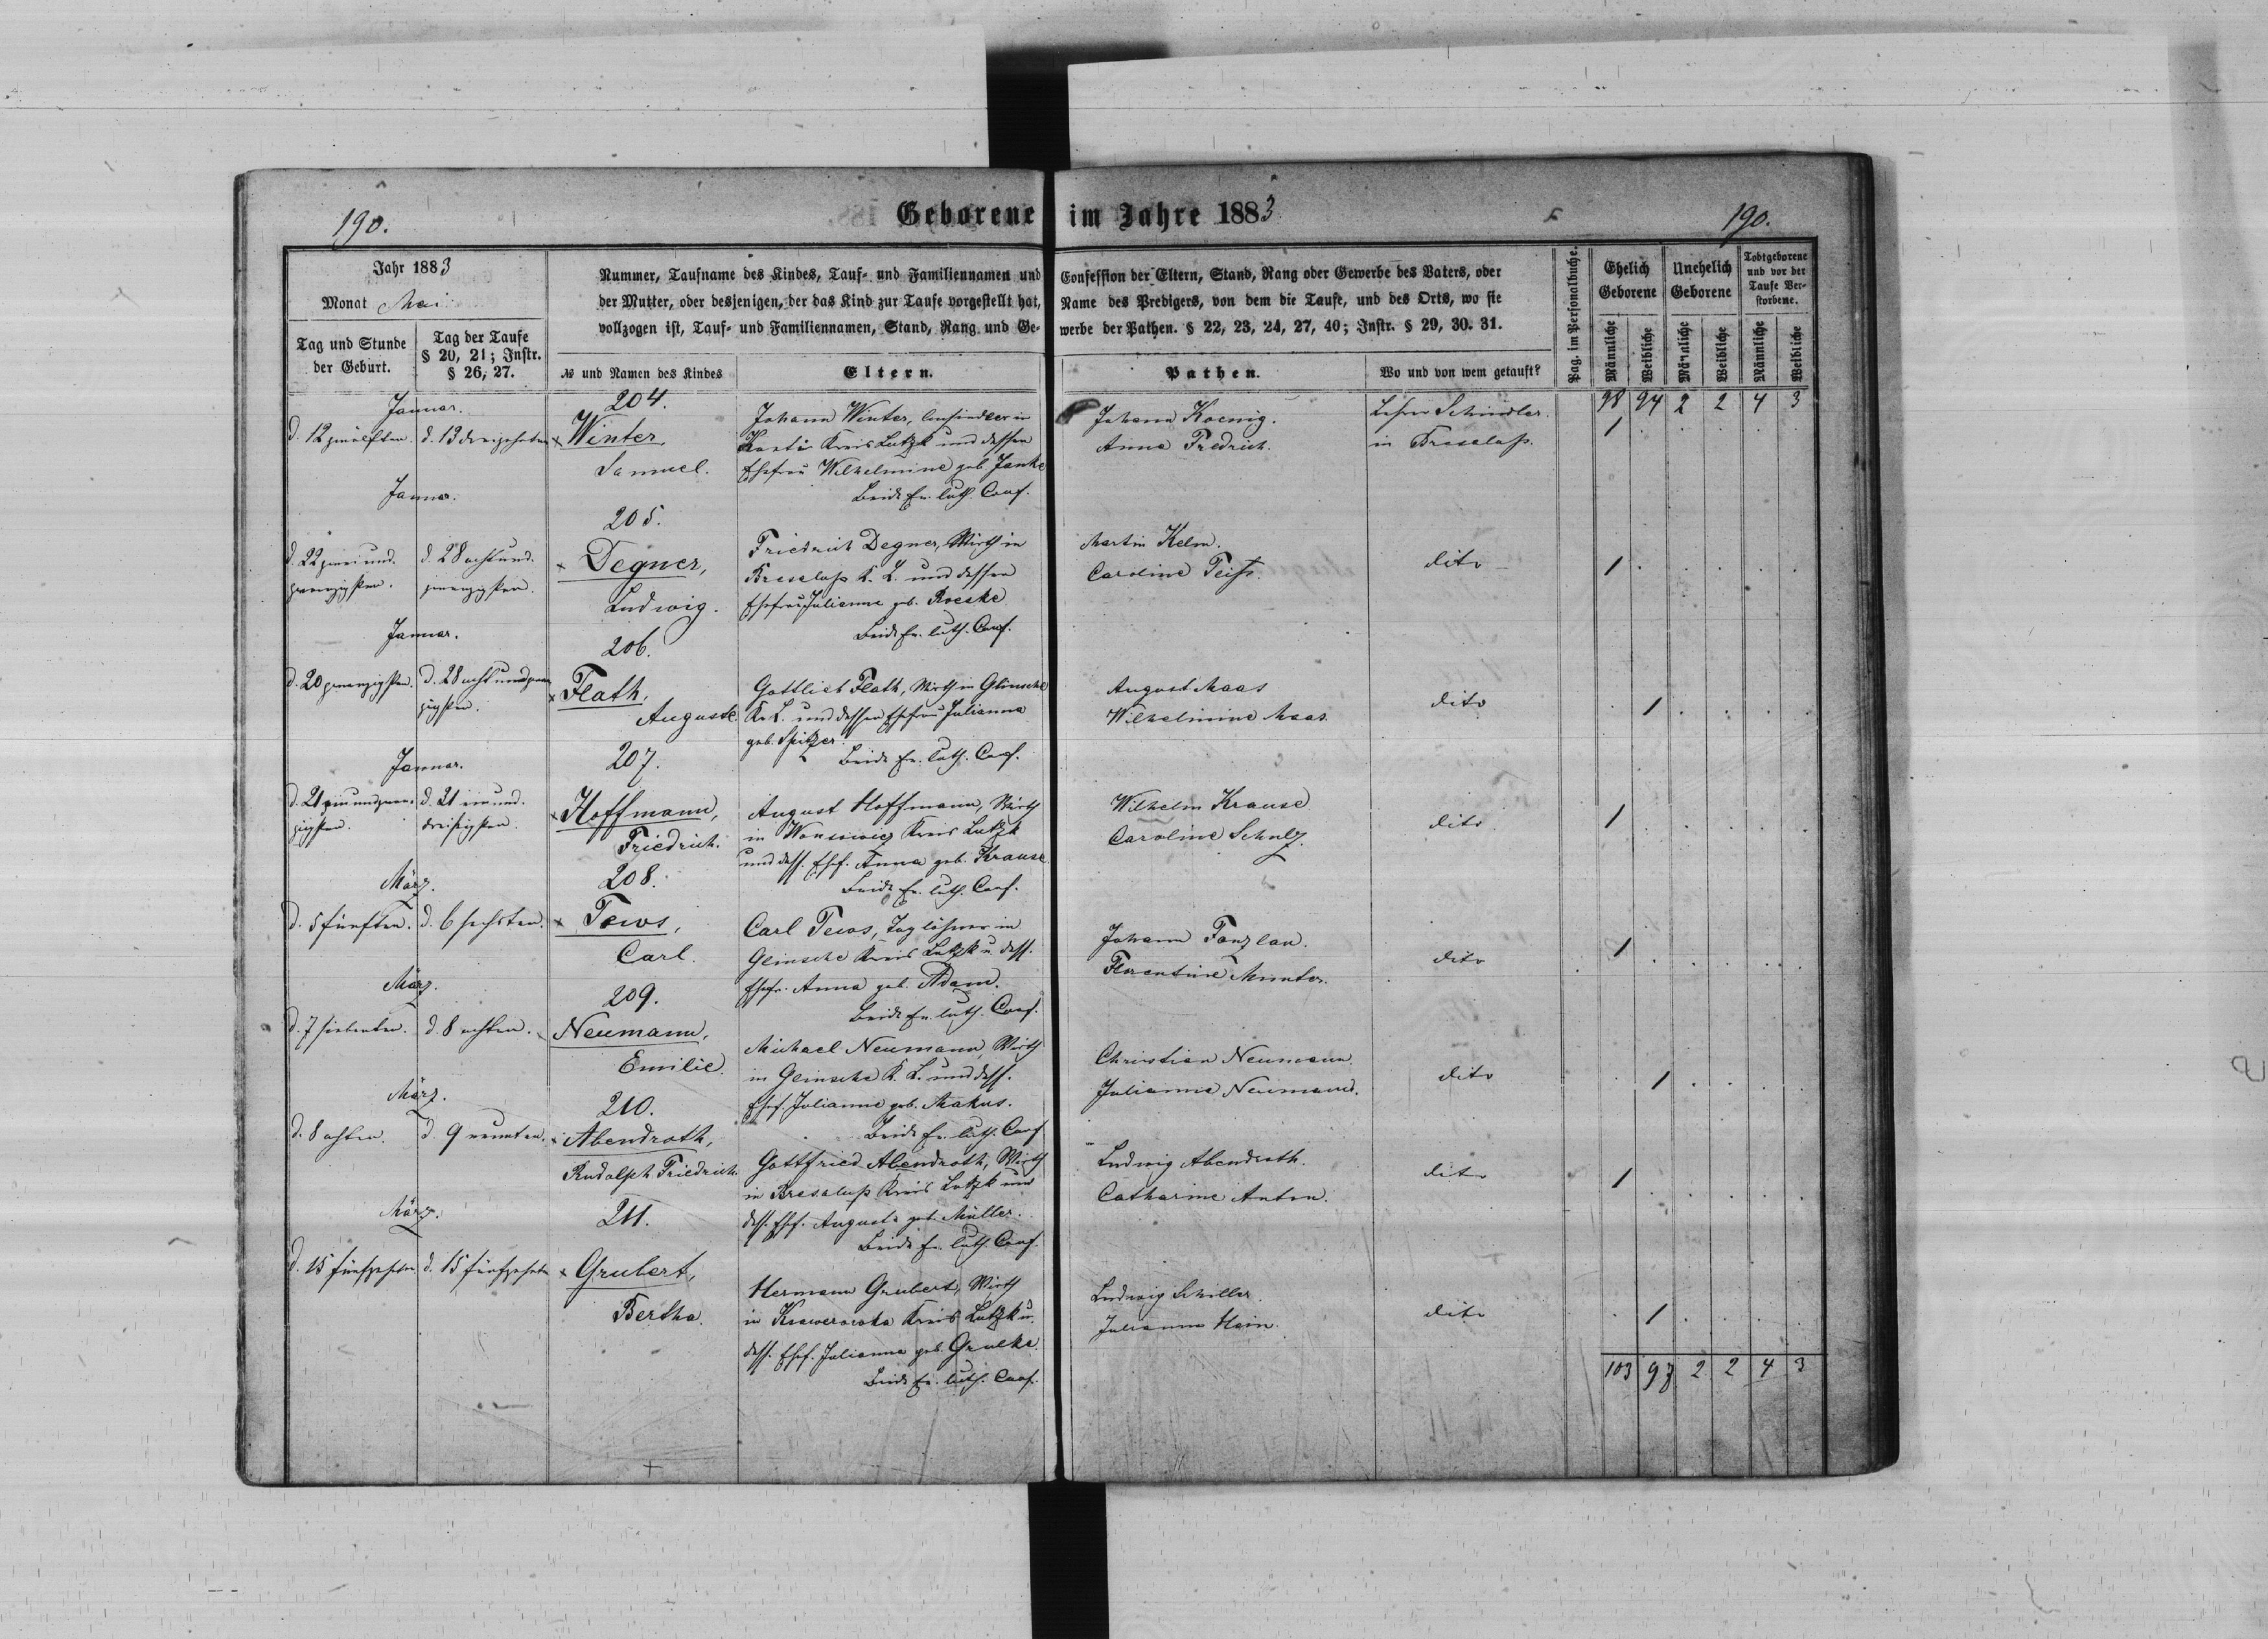 190.
Geborene im Jahre 1883
190.
Jahr 1883
Monat Mai
Tag und Stunde
der Geburt.
Tag der Taufe
§ 20, 21; Instr.
§ 26, 27.
Nummer, Taufname des Kindes, Tauf- und Familiennamen und
der Mutter, oder desjenigen, der das Kind zur Taufe vorgestellt hat,
vollzogen ist, Tauf- und Familiennamen, Stand, Rang und Ge-
№ und Namen des Kindes
Eltern.
Confession der Eltern, Stand, Rang oder Gewerbe des Vaters, oder
Name des Predigers, von dem die Taufe, und des Orts, wo sie
werbe der Pathen. § 22, 23, 24, 27, 40; Instr. § 29, 30. 31.
Pathen.
Wo und von wem getauft?
Pag. im Personalbuche.
Ehelich
Geborene
Unehelich
Geborene
Todtgeborene
und vor der
Taufe Ver-
storbene.
Männliche
Weibliche
Männliche
Weibliche
Männliche
Weibliche
98 94 2 2 4 3
Januar.
d. 12 zwölften.
d. 13 dreizehnten
204.
× Winter,
Samuel.
Johann Winter, Ansiedler in
Kreis Lutzk und dessen
Ehefrau Wilhelmine geb. Janke
Beide Ev. luth. Conf.
Johann Koenig.
Anna Fredrich.
Lehrer Schindler.
in Breselup.
1
Januar.
d. 22 zwei und
zwanzigsten.
d. 28 acht und
zwanzigsten.
205.
× Degner,
Ludwig.
Friedrich Degner, Wirth in
Breselup K. L. und dessen
Ehefrau Julianne geb. Roeske
Beide Ev. luth. Conf.
Martin Kelm.
Caroline
dito
1
Januar.
d. 20 zwanzigsten.
d. 28 acht und zwan
zigsten.
206.
× Flath,
Auguste.
Gottlieb Flath, Wirth in Glinsche
Kr. L. und dessen Ehefrau Julianna
geb. Spitzer.
Beide Ev. luth. Conf.
August Maas
Wilhelmine Maas.
dito
1
Januar.
d. 21 ein und zwan-
zigsten.
d. 31 ein und
dreißigsten.
207.
× Hoffmann,
Friedrich.
August Hoffmann, Wirth
in Kreis Lutzk
und dess. Ehf. Anna geb. Krause.
Beide Ev. luth. Conf.
Wilhelm Krause
Caroline Schulz.
dito
1
März.
d. 5 fünften.
d. 6 sechsten.
208.
× Tews,
Carl.
Carl Tews, Taglöhner in
Glinsche Kreis Lutzk u. dess.
Ehefr. Anna geb. Adam.
Beide Ev. luth. Conf.
Johann Fanzlau.
Florentine
dito
1
März.
d. 7 siebenten.
d. 8 achten.
209.
Neumann,
Emilie.
Michael Neumann, Wirth
in Glinsche K. L. und dess.
Ehf. Julianne geb. Makus.
Beide Ev. luth. Conf
Christian Neumann.
Julianna Neumann.
dito
1
März.
d. 8 achten.
d. 9 neunten.
210.
Abendroth,
Rudolph Friedrich.
Gottfried Abendroth, Wirth
in Breselup Kreis Lutzk und
dess. Ehf. Auguste geb. Müller.
Beide Ev. luth. Conf.
Ludwig Abendroth.
Catharine Anton.
dito
1
März.
d. 15 fünfzehnten
d. 15 fünfzehnten
211.
× Grubert,
Bertha.
Hermann Grubert, Wirth
in Kreis Lutzk u.
dess. Ehf. Julianna geb. Grulke.
Beide Ev. luth. Conf.
Ludwig Schiller.
Julianna Hein.
dito
1
103 97 2 2 4 3